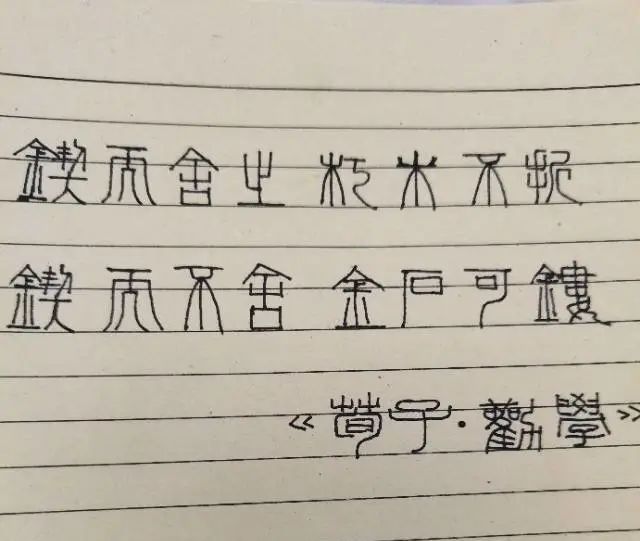 鍥而舍之 朽木不折
鍥而不舍 金石可鏤
《荀子·勸學》